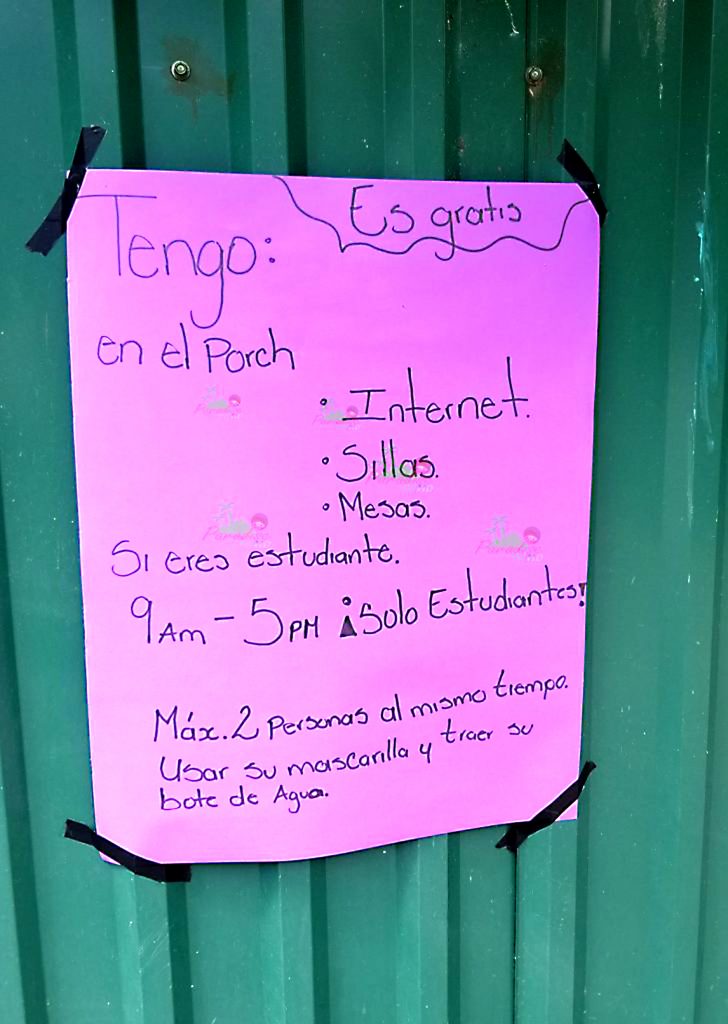 Es gratis
Tengo:
en el Porch
• Internet.
• Sillas.
• Mesas.
Si eres estudiante.
9Am - 5PM ¡Solo Estudiantes!
Máx. 2 Personas al mismo tiempo.
Usar su mascarilla y traer su
bote de Agua.